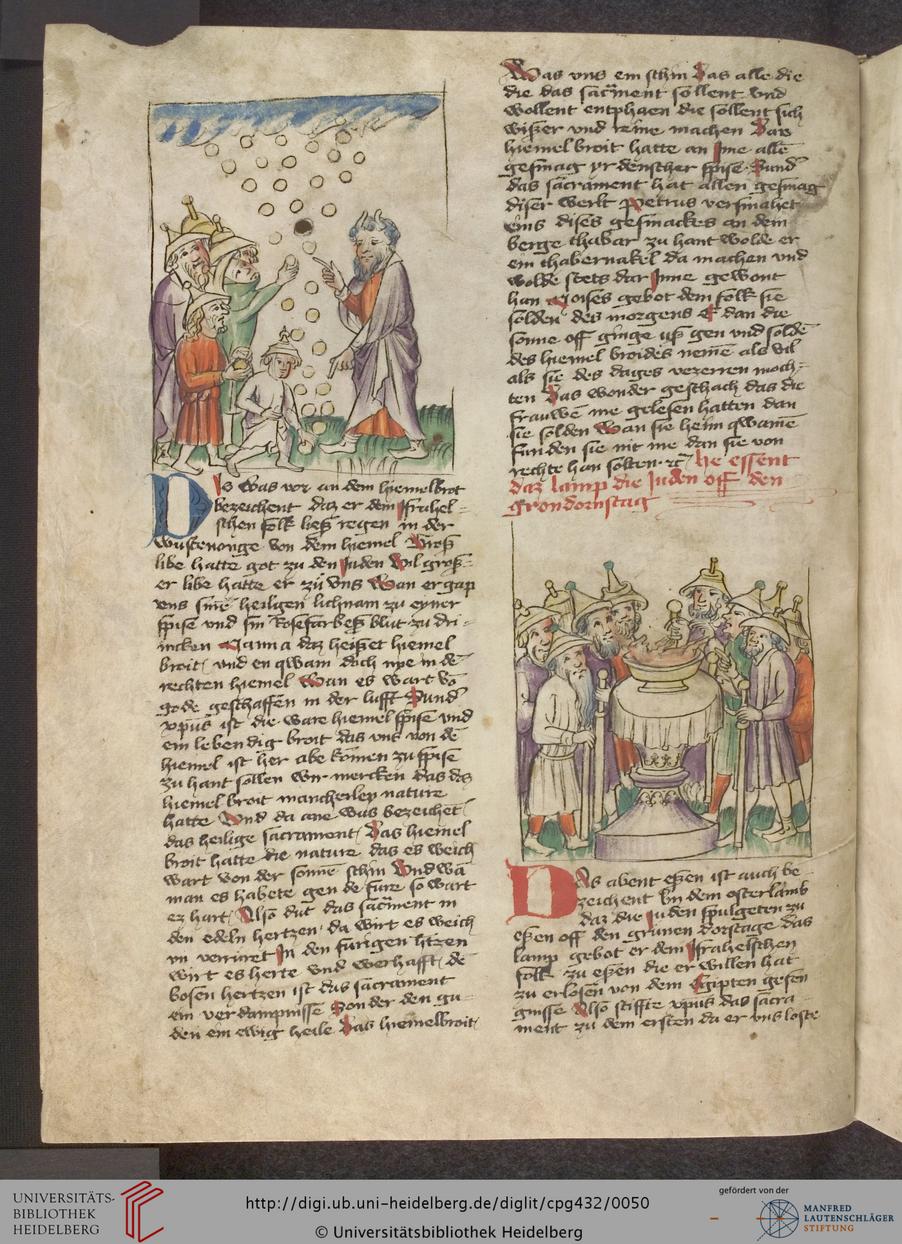 Dis was vor an dem hiemelbrot
bezeichent daz er dem Israhel-
schen folk liesz regen in der
wustenonge von dem hiemel Grosz
libe hatte got zu den Juden Vil grosz-
er libe hatte er zu vns Wan er gap
vns sine heiligen lichnam zu eyner
spise vnd sin Rosefarbesz blut zu dri-
incken Manna daz heiszet hiemel
broit vnd en qwam doch nye in de
rechten hiemel Wan es wart vō
gode geschaffen in der lufft Sund'
xpus ist die ware hiemel spise vnd
ein lebendig broit das vns von dē
hiemel ist her abe komen zu spise
zu hant sollen wir mercken das des
hiemel broit mancherley nature
hatte Vnd da ane was bezeichet
das heilige sacrament Das hiemel
broit hatte die nature das es weich
wart von der sonne schin Vnd wā
man es habete gen de fure so wart
ez hart Also dut das sacment in
den edeln hertzen da wirt es weich
vn verruret In den furigen hitzen
wirt es herte vnd werhafft de
bosen hertzen ist das sacrament
ein verdampnisse Sonder den gu-
den ein ewig heile Das hiemelbroit
Was vns ein schin Das alle die
die das sacment sollent vnd
wollent entphaen die sollent sich
wiszer vnd reine machen Das
hiemel broit hatte an Jme alle
gesmag yrdenscher spise Sund'
das sacrament hat allen gesmag
diser werlt Petrus versmahet
eins dises gesmackes an dem
berge thabar zu hant wolde er
ein thabernakel da machen vnd
wolde stets dar Jnne gewont
han Moises gebot dem folk sie
solden des morgens E dan die
sonne off ginge vsz gen vnd soldē
des hiemel broides nemē als vil
als sie des dages verzerren moch-
ten Das wonder geschach das die
frauwē me gelesen hatten dan
sie solden Wan sie heim qwamē
funden sie nit me dan sie von
rechte han solten rc hie essent
daz lamp die Juden off den
grondornstag
Das abent eszen ist auch be
zeichent bij dem osterlamb
daz die Juden spulgeten zu
eszen off den grunen dorstage das
lamp gebot er dem Israhelschen
folk zu eszen die er willen hat
zu erlosen von dem Egipten gefen
gnisse Also stiffte xpus das sacra
ment zu dem ersten da er vns loste
UNIVERSITÄTS-
BIBLIOTHEK
HEIDELBERG
http://digi.ub.uni-heidelberg.de/diglit/cpg432/0050
© Universitätsbibliothek Heidelberg
gefördert von der
MANFRED
LAUTENSCHLÄGER
STIFTUNG